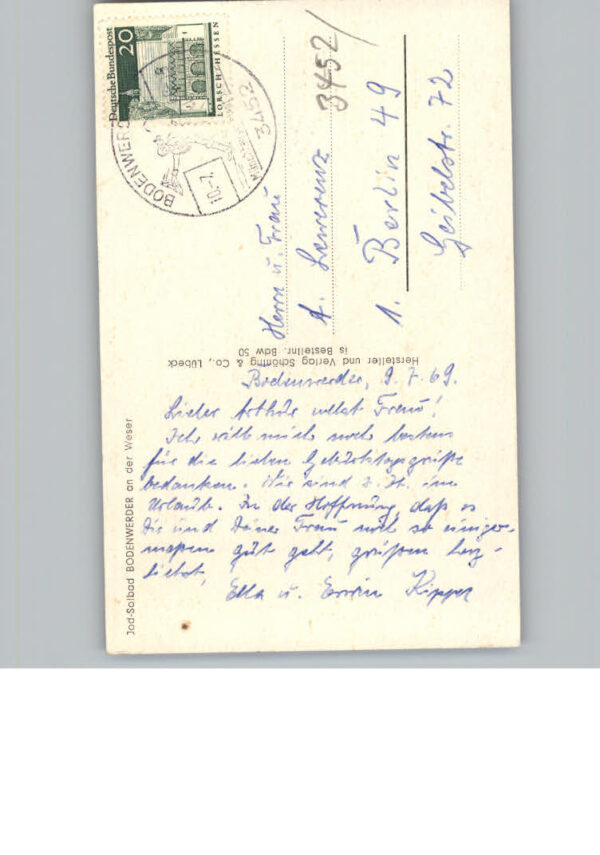 Jod-Solbad BODENWERDER an der Weser
Bodenwerder, 9.7.69.
Lieber Arthur nebst Frau!
Ich will mich noch bestens
für die lieben Geburtstagsgrüße
bedanken. Wir sind z. Zt. im
Urlaub. In der Hoffnung, daß es
Dir und Deiner Frau noch so einiger-
maßen gut geht, grüßen herz-
lichst,
Ella u. Erwin Kipper
Hersteller und Verlag Schöning & Co., Lübeck
is Bestellnr. Bdw 50
Deutsche Bundespost
20
LORSCH/HESSEN
BODENWERD
10.-7.
3452
3452/
Herrn u. Frau
A. Lewerenz
1. Berlin 49
Geibelstr. 72